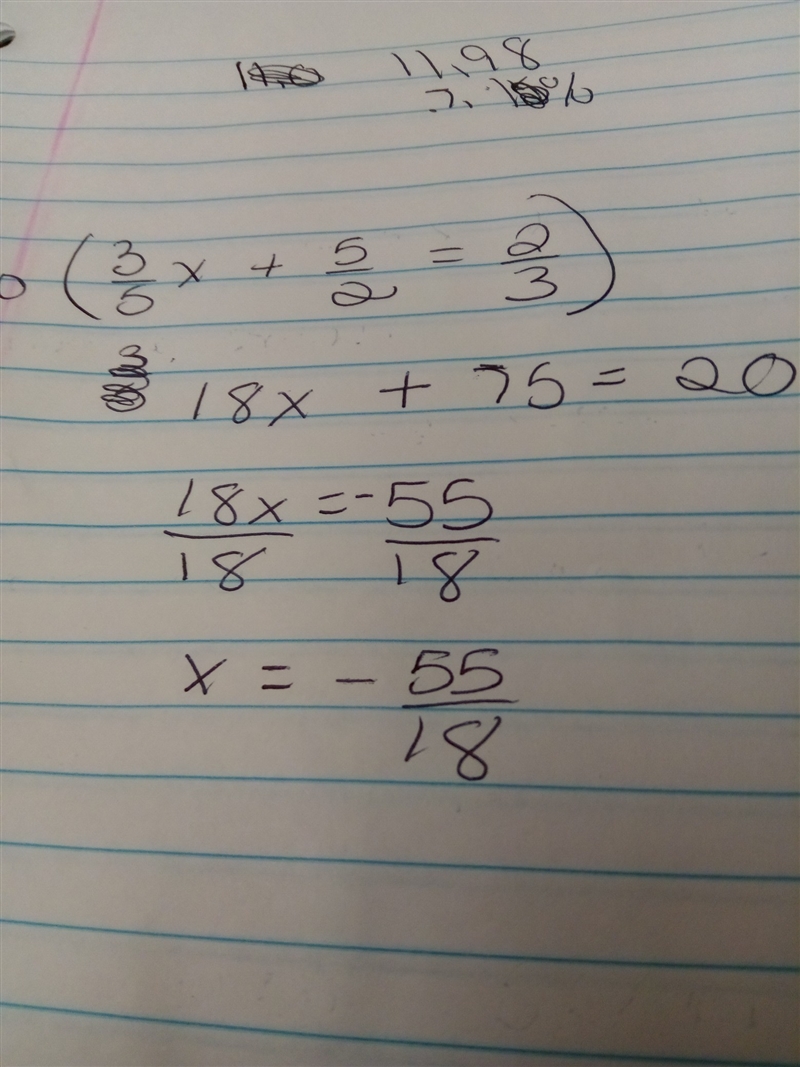 11.98
0 (3/5 x + 5/2 = 2/3)
18x + 75 = 20
18x/18 = -55/18
x = - 55/18